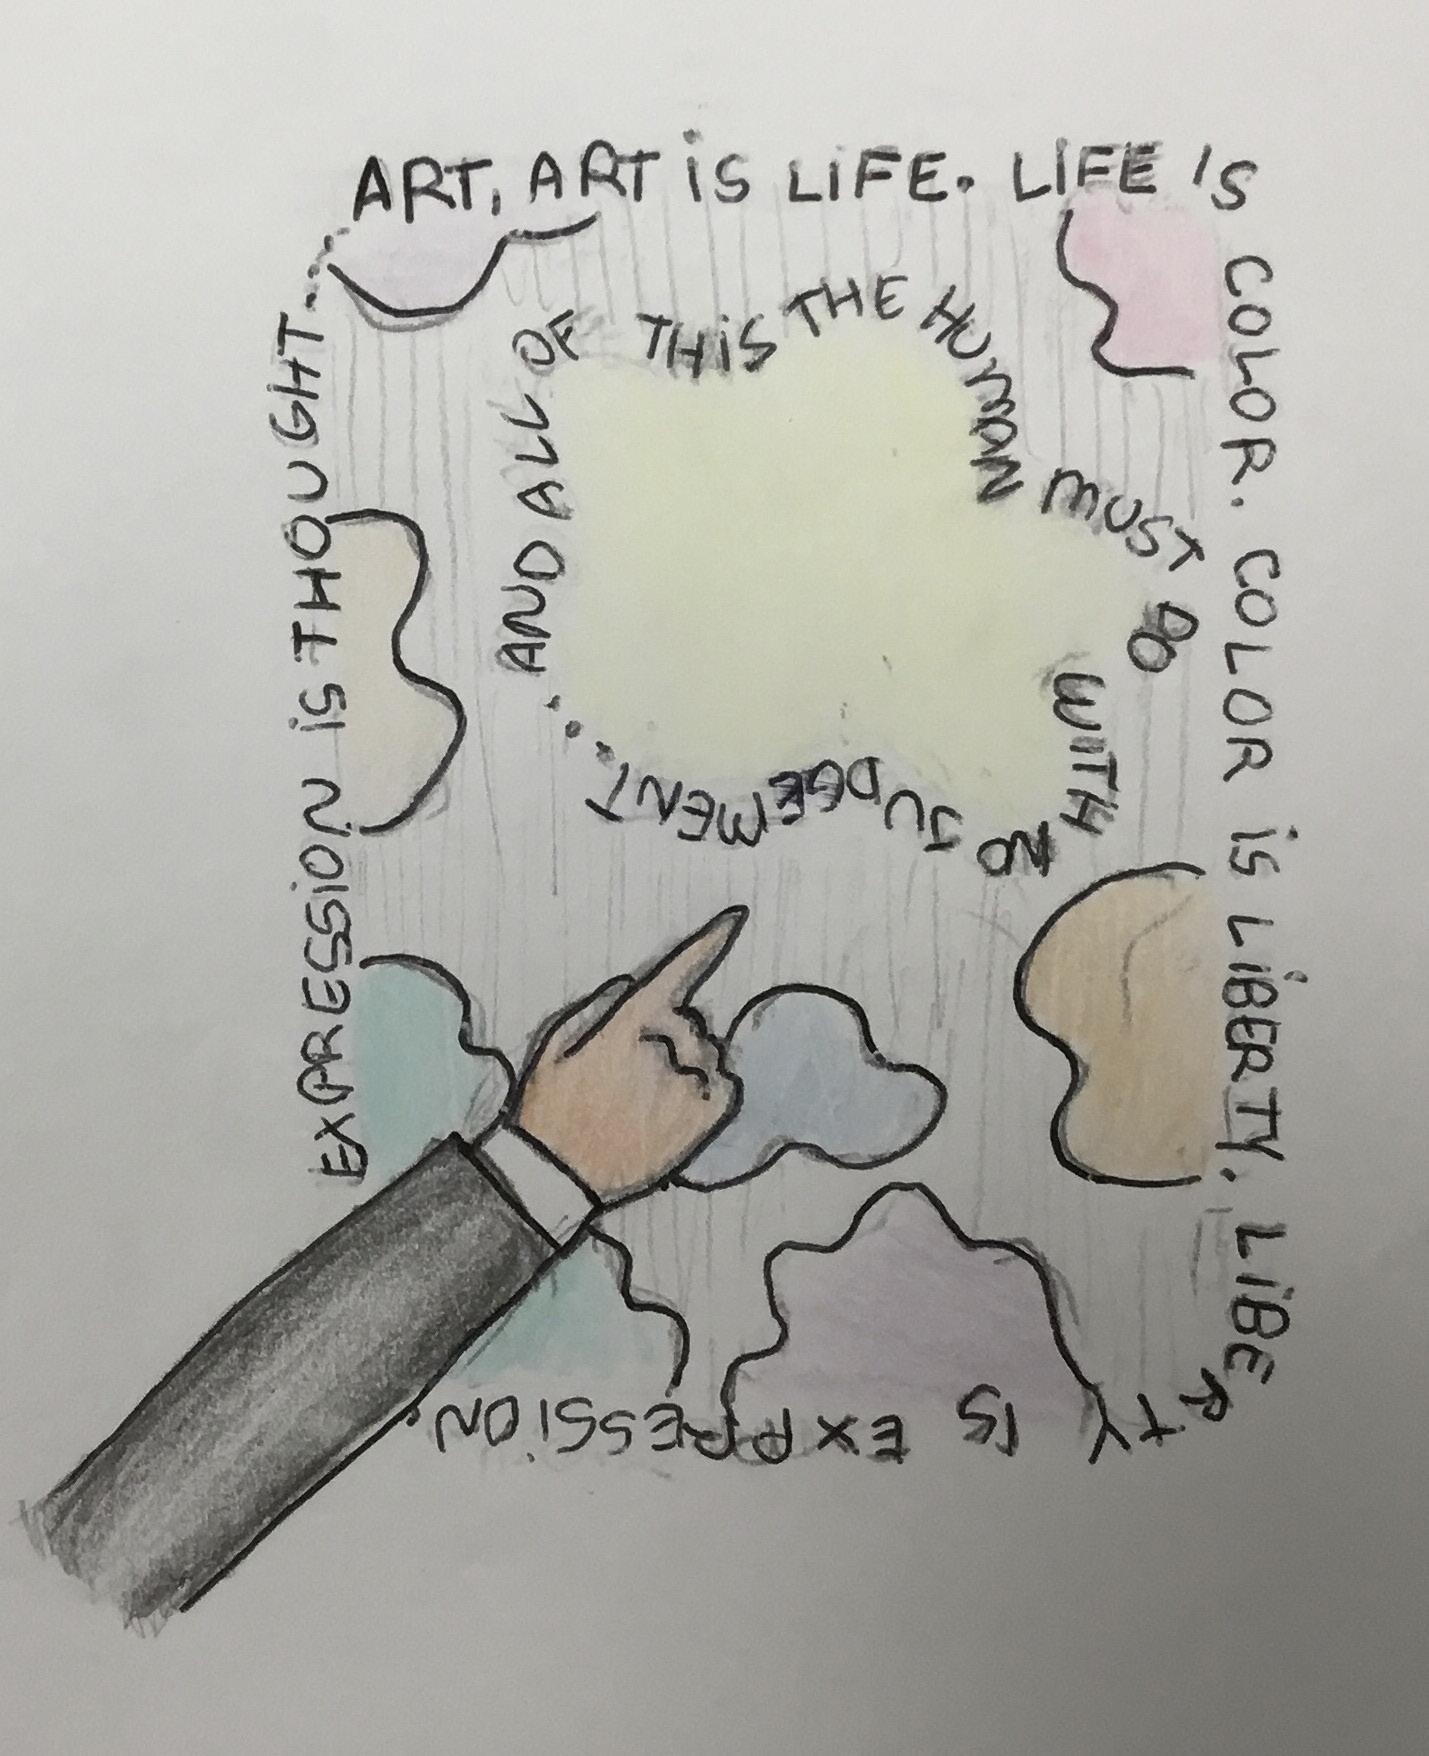 ART, ART IS LIFE. LIFE IS
COLOR. COLOR IS LIBERTY. LIBE
RTY IS EXPRESSION.
EXPRESSION IS THOUGHT...
AND ALL OF THIS THE HUMAN MUST DO WITH NO JUDGEMENT...